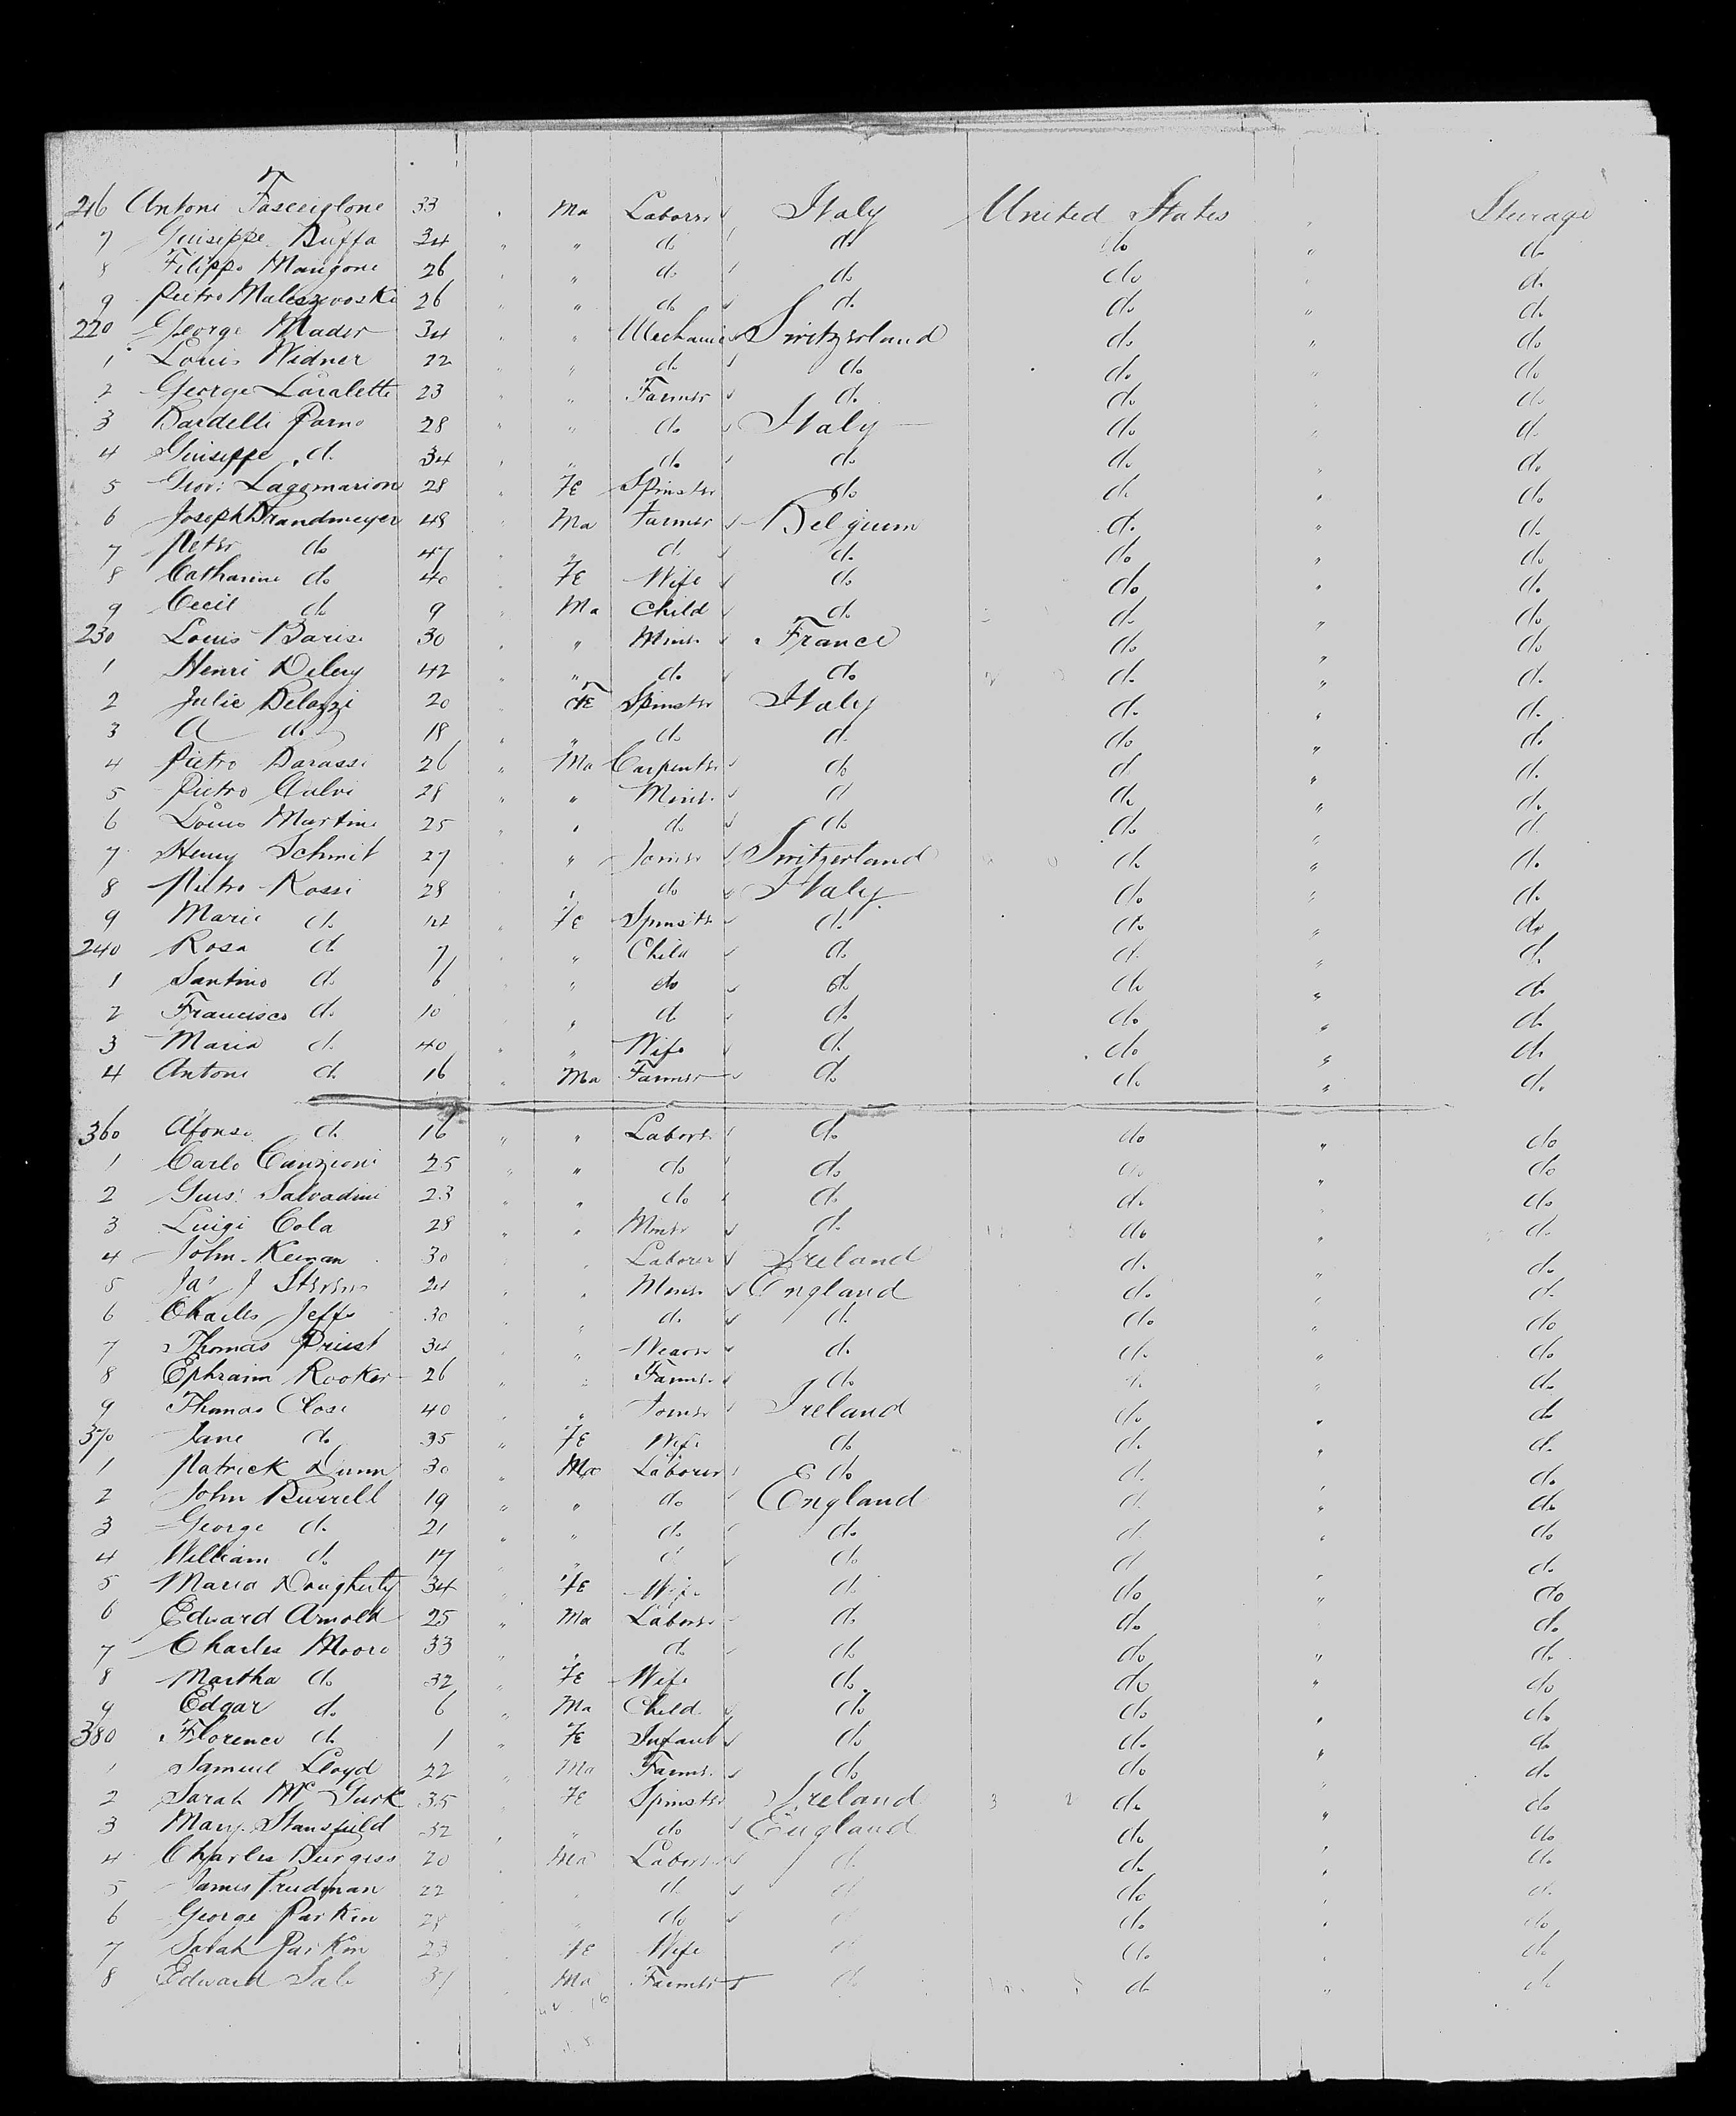 216 Antoni Fasceiglone 33 " Ma Laborer Italy United States " Steerage
7 Guiseppe Buffa 34 " " do do do " do
8 Filippo Mangone 26 " " do do do " do
9 Pietro Maleszewoski 26 " " do do do " do
220 George Mader 34 " " Mechanic Switzerland do " do
1 Louis Widner 22 " " do do do " do
2 George Loraletti 23 " " Farmer do do " do
3 Bardelli Parno 28 " " do Italy do " do
4 Giuseppe do 34 " " do do do " do
5 Giov: Lagomarion 28 " Fe Spinster do do " do
6 Joseph Brandmeyer 48 " Ma Farmer Belgium do " do
7 Peter do 47 " " do do do " do
8 Catharine do 40 " Fe Wife do do " do
9 Cecil do 9 " Ma Child do do " do
230 Louis Barise 30 " " Miner France do " do
1 Henri Deluy 42 " " do do do " do
2 Julie Delazzi 20 " Fe Spinster Italy do " do
3 A do 18 " " do do do " do
4 Pietro Barassi 26 " Ma Carpenter do do " do
5 Pietro Calvi 28 " " Miner do do " do
6 Louis Martini 25 " " do do do " do
7 Henry Schmit 27 " " Joiner Switzerland do " do
8 Pietro Rossi 28 " " do Italy do " do
9 Marie do Fe Spinstr do do " do
240 Rosa do 7 " " Child do do " do
1 Santino do 6 " " do do do " do
2 Francisco do 10 " " do do do " do
3 Maria do 40 " " Wife do do " do
4 Antoni do 16 " Ma Farmer do do " do
360 Afonso do 16 " " Laborer do do " do
1 Carlo Canzioni 25 " " do do do " do
2 Gius: Salvadini 23 " " do do do " do
3 Luigi Cola 28 " " Miner do do " do
4 John Keenan 30 " " Laborer Ireland do " do
5 Jas J Stevens 24 " " Miner England do " do
6 Charles Jeffs 30 " " do do do " do
7 Thomas Priest 34 " " Weaver do do " do
8 Ephraim Rooker 26 " " Farmer do do " do
9 Thomas Close 40 " " Joiner Ireland do " do
370 Jane do 35 " Fe Wife do do " do
1 Patrick Dunn 30 " Ma Laborer do do " do
2 John Burrell 19 " " do England do " do
3 George do 21 " " do do do " do
4 William do 17 " " do do do " do
5 Maria Dougherty 34 " Fe Wife do do " do
6 Edward Arnold 25 " Ma Laborer do do " do
7 Charles Moore 33 " " do do do " do
8 Martha do 32 " Fe Wife do do " do
9 Edgar do 6 " Ma Child do do " do
380 Florence do 1 " Fe Infant do do " do
1 Samuel Lloyd 22 " Ma Farmer do do " do
2 Sarah McGurk 35 " Fe Spinster Ireland do " do
3 Mary Stansfield 32 " " do England do " do
4 Charles Burgess 20 " Ma Laborer do do " do
5 James Prudman 22 " " do do do " do
6 George Parkin 28 " " do do do " do
7 Sarah Parkin 23 " Fe Wife do do " do
8 Edward Sale 37 " Ma Farmer do do " do